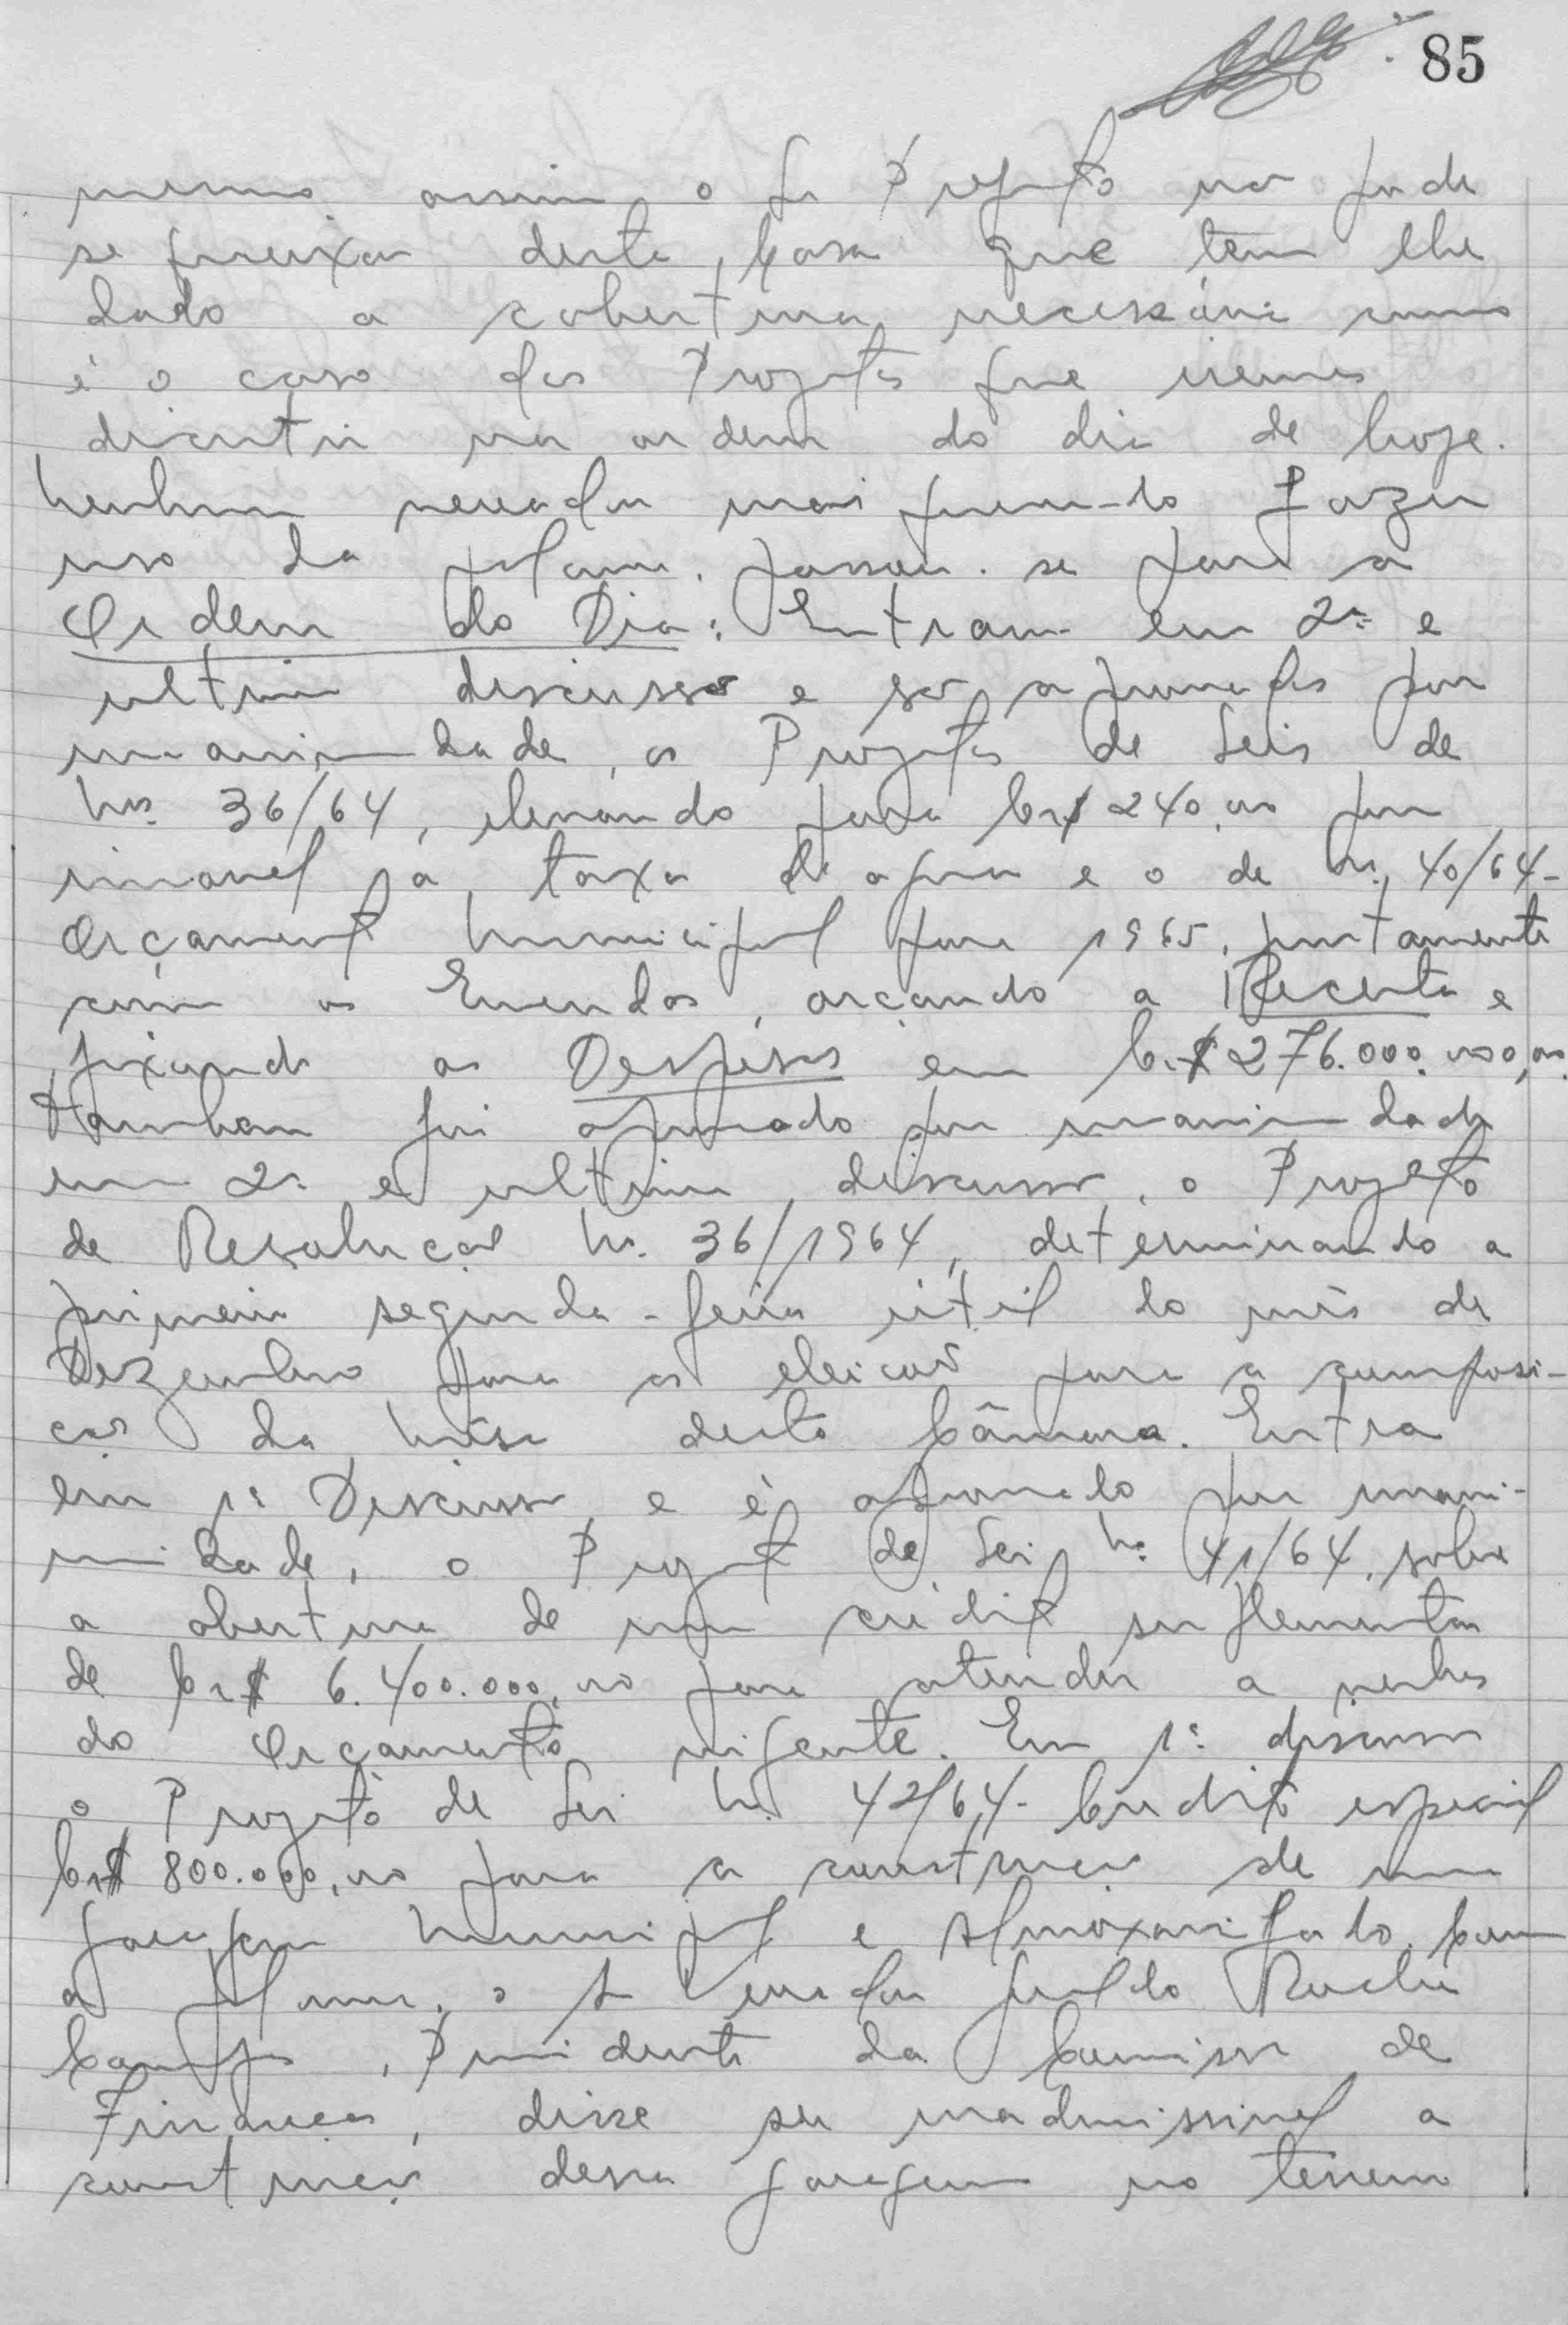 85
mesmo assim o Sr Prefeito não pode
se queixar desta Casa que tem lhe
dado a cobertura necessária como
é o caso dos Projetos que iremos
discutir na ordem do dia de hoje.
Nenhum vereador mais querendo fazer
uso da palavra, passou-se para a
Ordem do Dia: Entram em 2ª e
ultima discussão e são aprovados por
unanimidade, os Projetos de Leis de
Nos. 36/64, elevando para Cr$ 240,00 por
imovel a taxa de agua e o de Nº. 40/64-
Orçamento Municipal para 1965, juntamente
com as Emendas, orçando a Receita e
fixando as Despesas em Cr$ 276.000.000,00.
Tambem foi aprovado por unanimidade
em 2ª e ultima discussão, o Projeto
de Resolução Nº. 36/1964, determinando a
primeira segunda-feira útil do mês de
Dezembro para as eleições para a composi-
ção da Mesa desta Câmara. Entra
em 1ª Discussão e é aprovado por unani-
midade, o Projeto de Lei Nº 41/64, sobre
a abertura de um crédito suplementar
de Cr$ 6.400.000,00 para atender a verbas
do Orçamento vigente. Em 1ª discussão
o Projeto de Lei Nº 42/64- Credito especial
Cr$ 800.000,00 para a construção de uma
garagem Municipal e Almoxarifado. Com
a palavra, o Sr Vereador Geraldo Rocha
Campos, Presidente da Comissão de
Finanças, disse ser inadmissivel a
construção dessa garagem no terreno